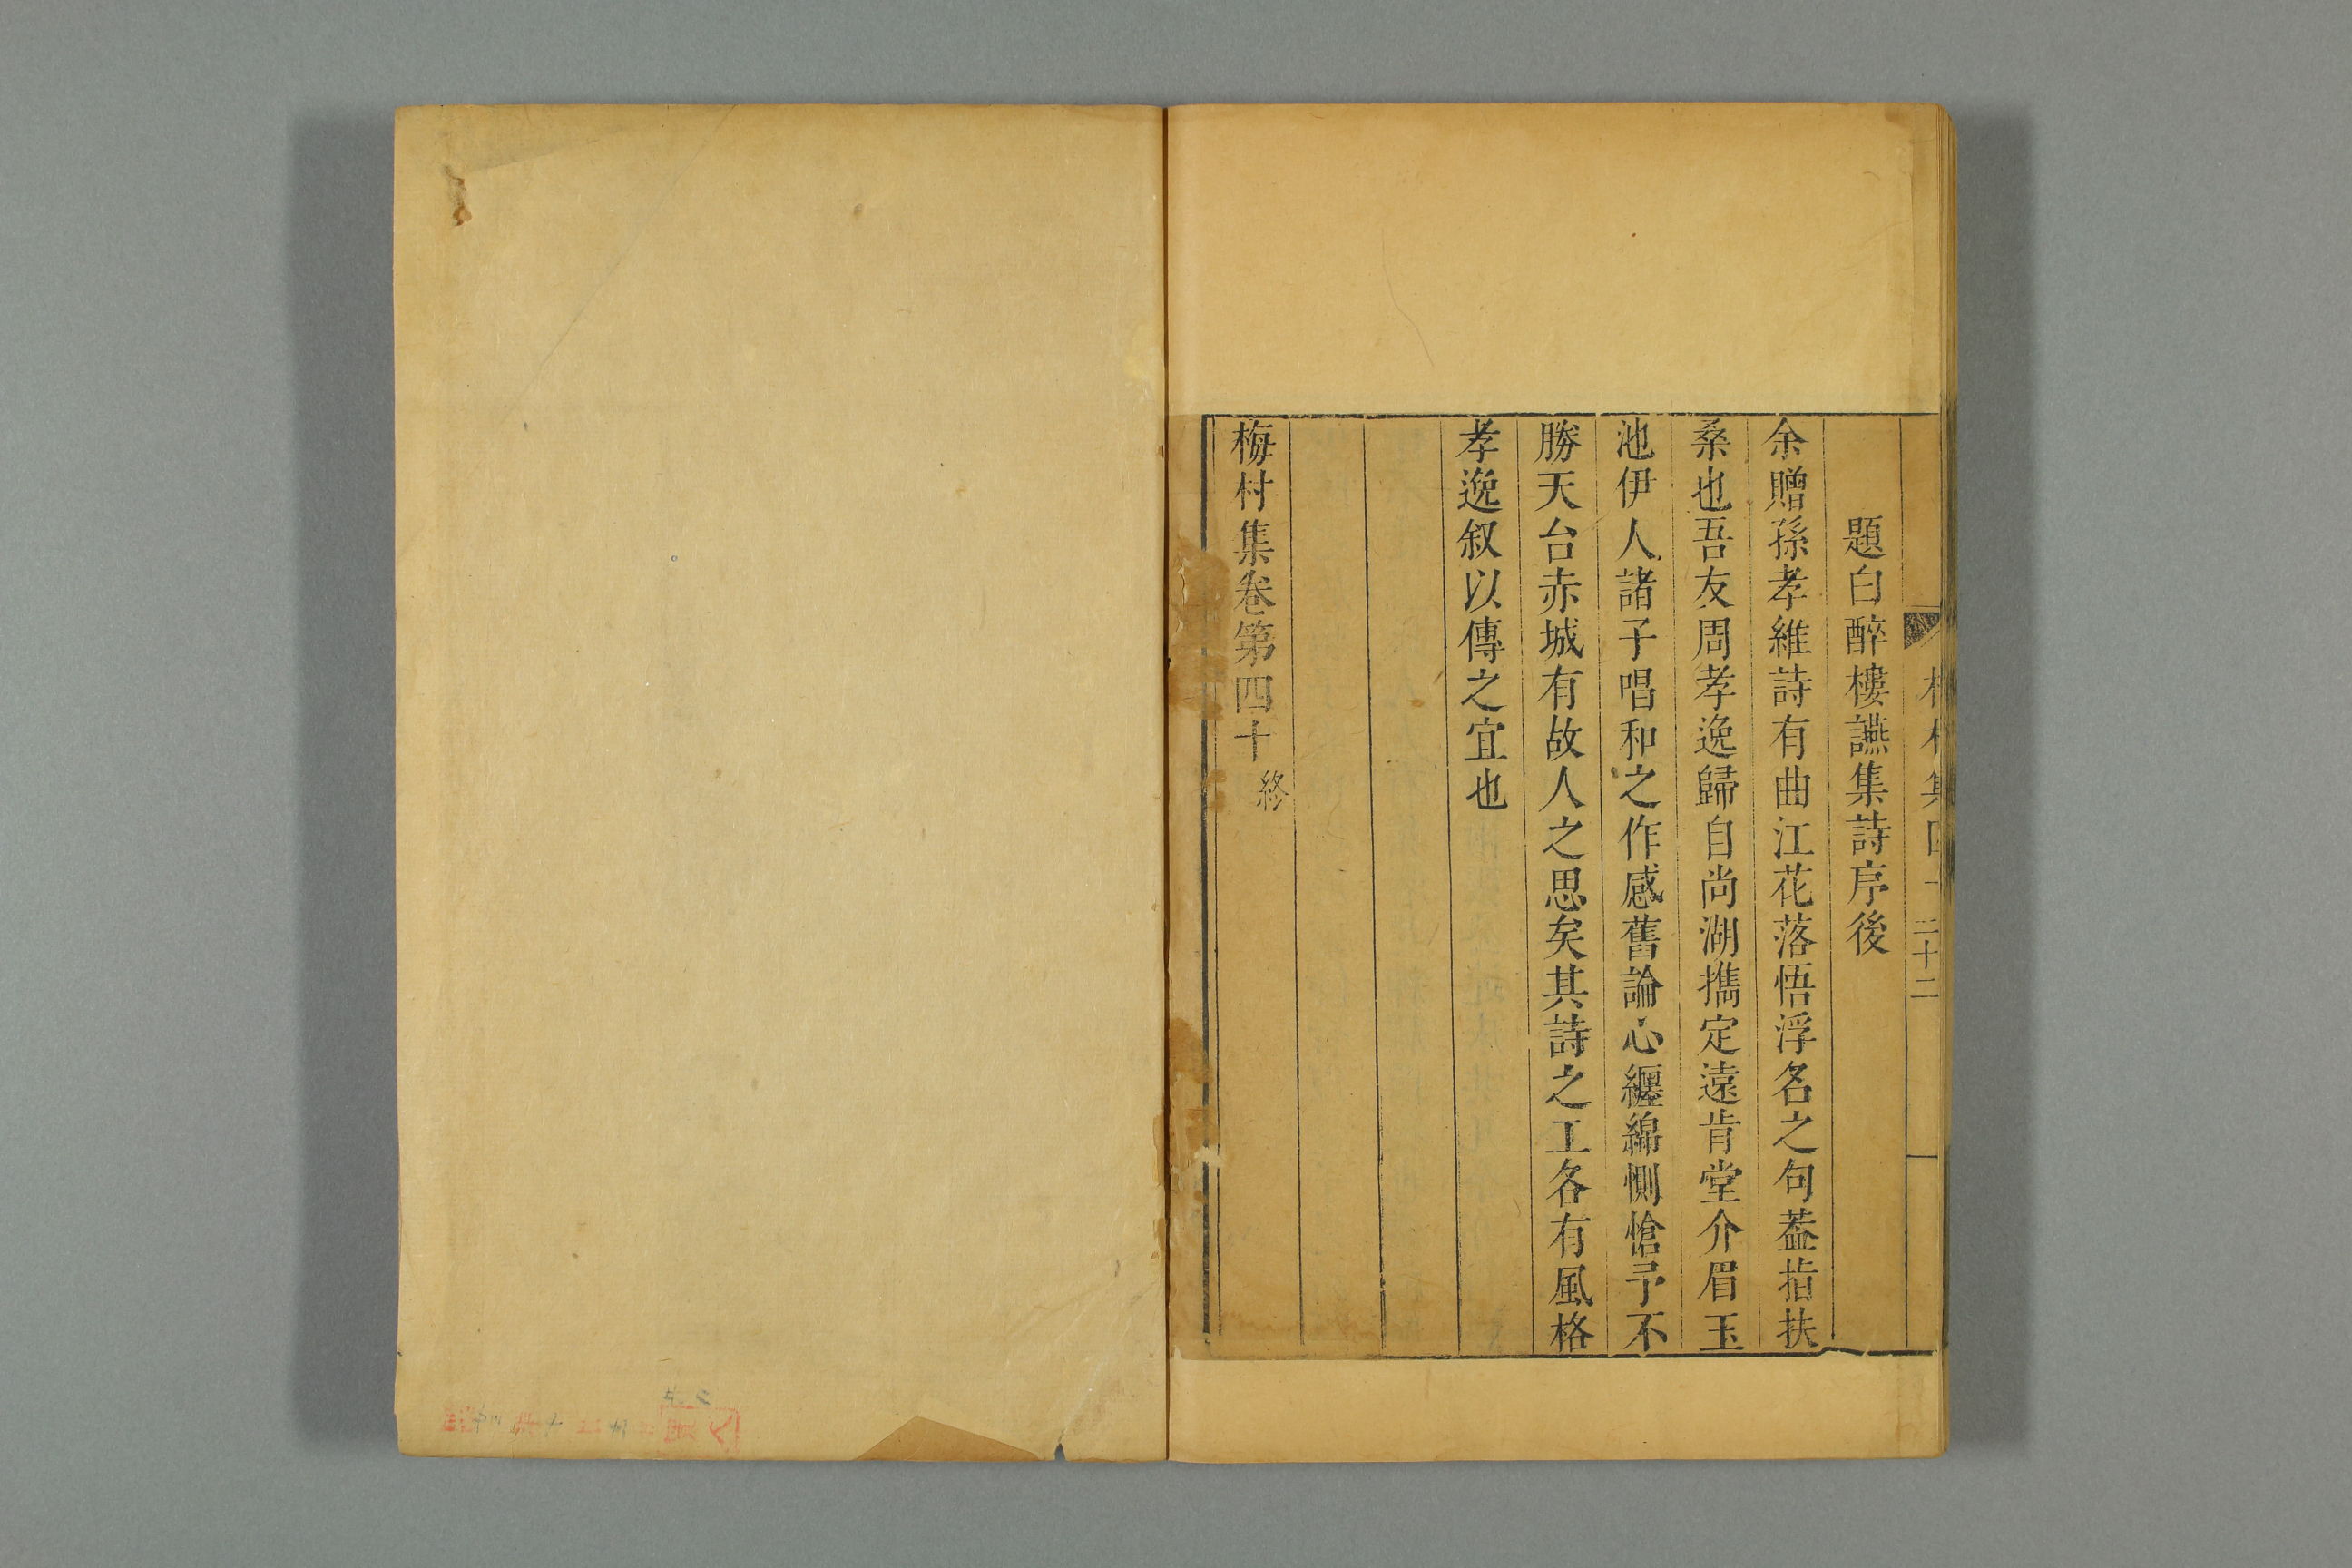 題白醉樓讌集詩序後
余贈孫孝維詩有曲江花落悟浮名之句葢指扶
桑也吾友周孝逸歸自尚湖携定遠肯堂介眉玉
池伊人諸子唱和之作感舊論心纏綿惻愴予不
勝天台赤城有故人之思矣其詩之工各有風格
孝逸叙以傳之宜也
梅村集卷第四十 終